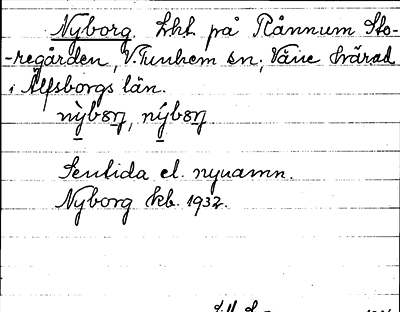 Nyborg. Lht. på Rånnum Sto-
-regården, V. Tunhem sn; Väne härad
i Älfsborgs län.
Sentida el. nyuamn.
Nyborg kb. 1932.